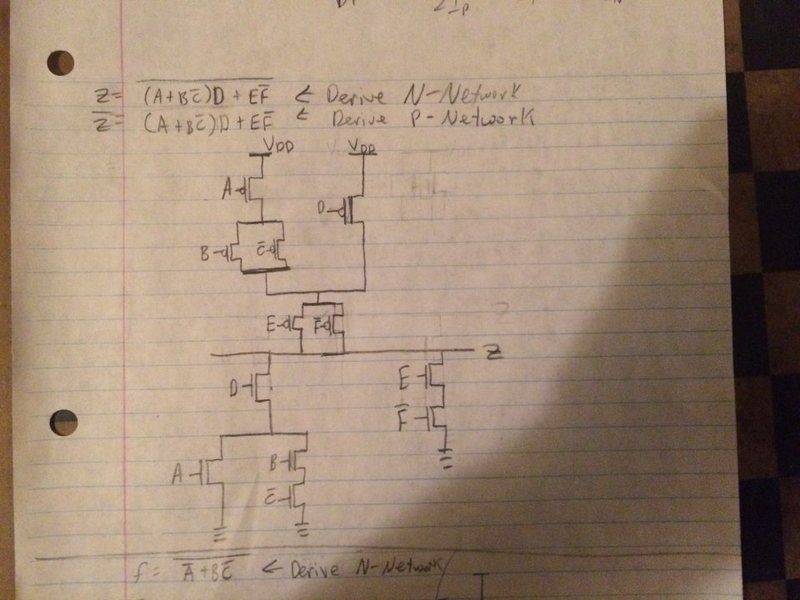 Z = \overline{(A+B\overline{C})D + E\overline{F}} < Derive N-Network
\overline{Z} = (A+B\overline{C})D + E\overline{F} < Derive P-Network
VDD VDD
A
D
B \overline{C}
E \overline{F}
Z
D E
\overline{F}
A B
\overline{C}
f = \overline{\overline{A}+B\overline{C}} < Derive N-Network